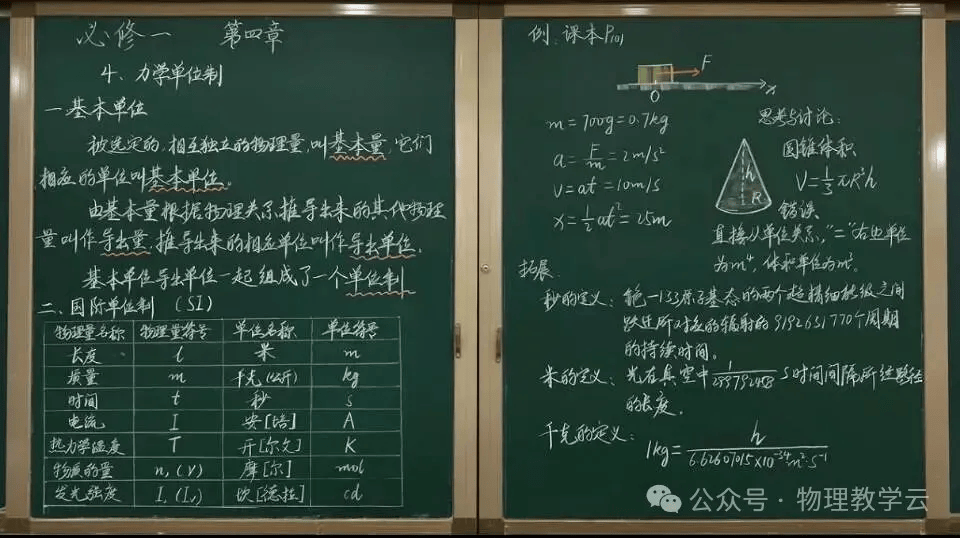 必修一 第四章
4、力学单位制
一基本单位
被选定的,相互独立的物理量,叫基本量,它们
相应的单位叫基本单位。
由基本量根据物理关系推导出来的其他物理
量叫作导出量,推导出来的相应单位叫作导出单位。
基本单位导出单位一起组成了一个单位制
二、国际单位制 (SI)
物理量名称 物理量符号 单位名称 单位符号
长度 l 米 m
质量 m 千克(公斤) kg
时间 t 秒 s
电流 I 安[培] A
热力学温度 T 开[尔文] K
物质的量 n,(ν) 摩[尔] mol
发光强度 I,(Iv) 坎[德拉] cd
例:课本P101
F
O x
m=700g=0.7kg
a=F/m=2m/s²
v=at=10m/s
x=1/2at²=25m
思考与讨论:
圆锥体积
V=1/3πR³h
h
R
错误
直接从单位关系,"="右边单位
为m⁴,体积单位为m³。
拓展:
秒的定义:铯-133原子基态的两个超精细能级之间
跃迁所对应的辐射的9192631770个周期
的持续时间。
米的定义:光在真空中1/299792458 s时间间隔所经路径
的长度。
千克的定义:
1kg=h/6.62607015×10⁻³⁴m²·s⁻¹
公众号·物理教学云